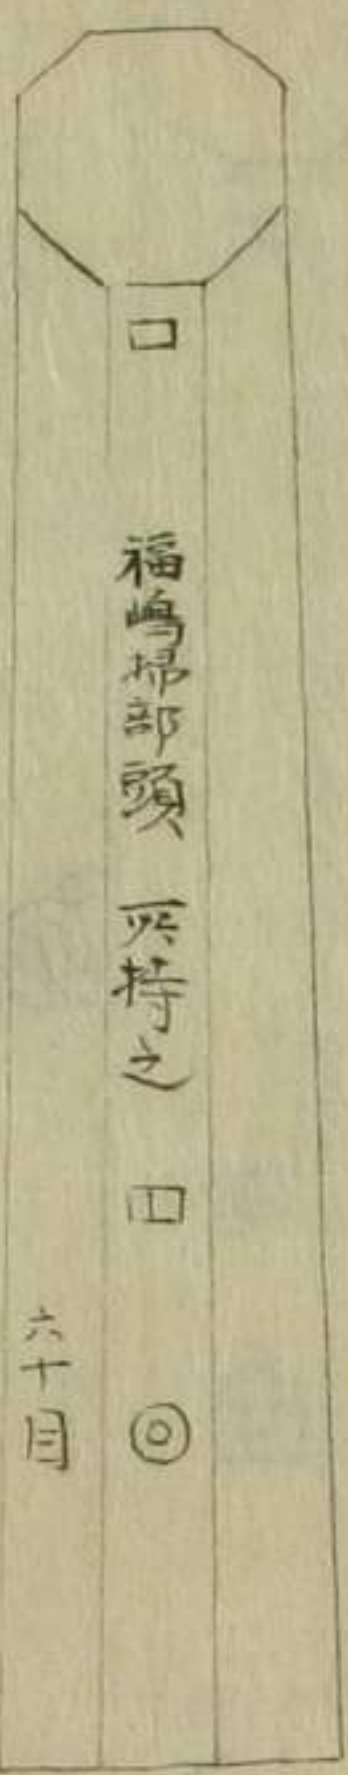 福嶋掃部頭 所持之
六十目